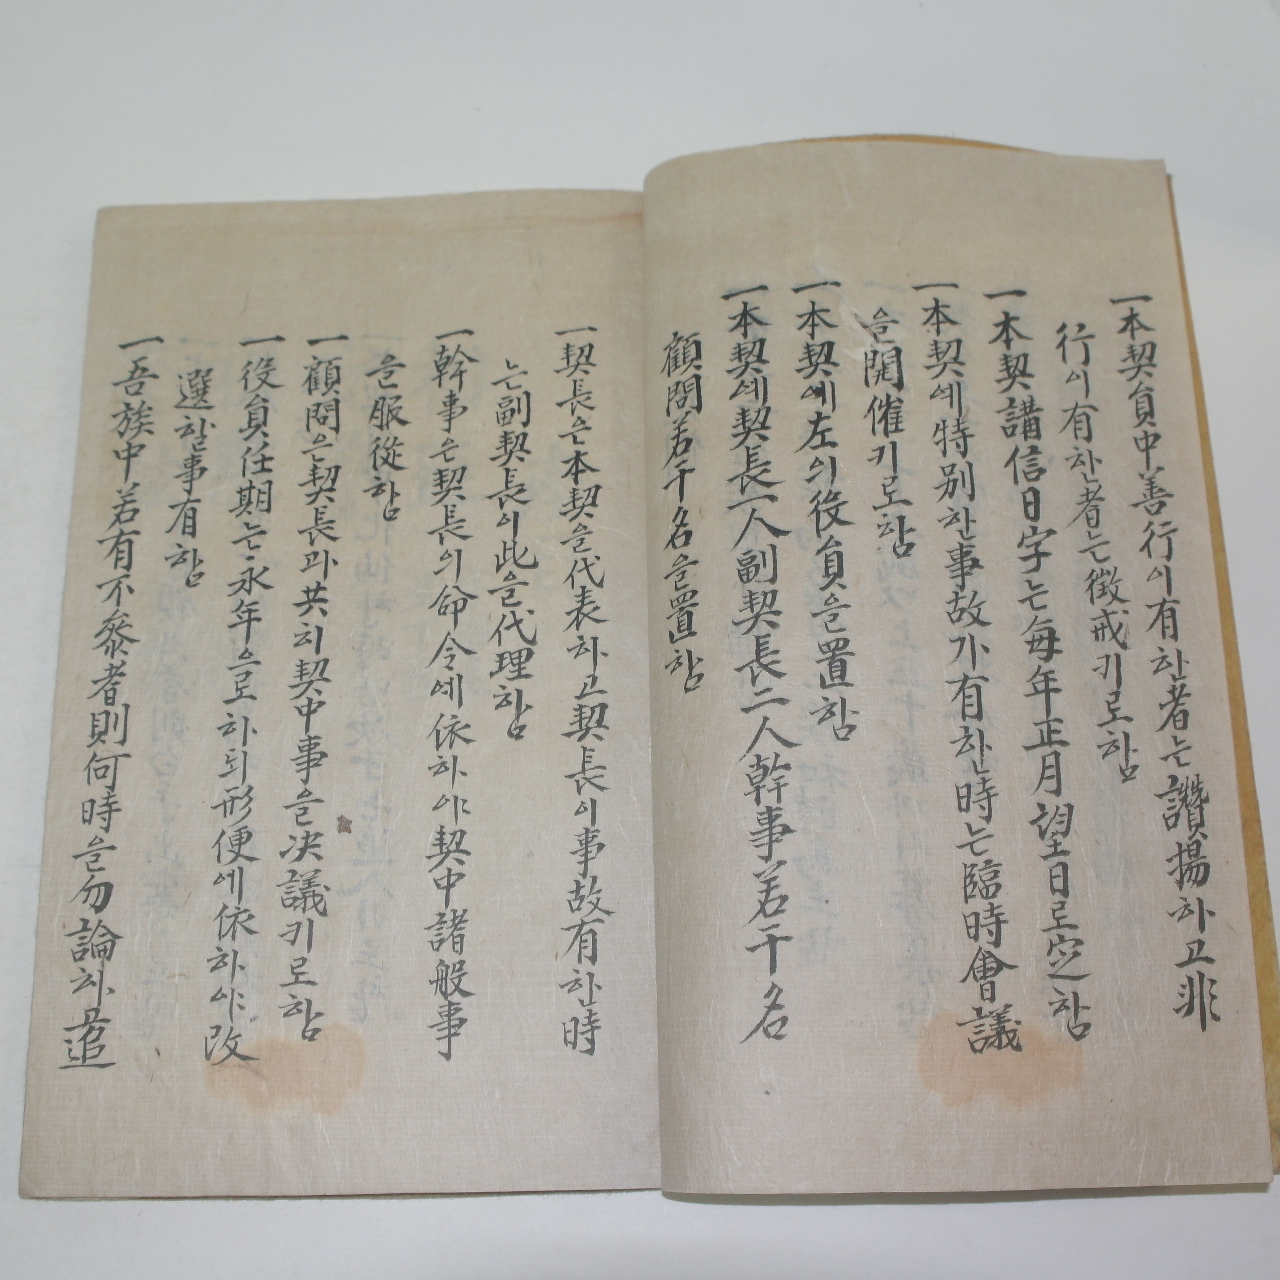 一本契員中善行이有한者는讚揚하고非
行이有한者는徵戒키로함
一本契講信日字는每年正月望日로定함
一本契에特別한事故가有한時는臨時會議
을開催키로함
一本契에左의役員을置함
一本契에契長一人副契長二人幹事若干名
顧問若干名을置함
一契長은本契을代表하고契長이事故有한時
는副契長이此을代理함
一幹事은契長의命令에依하야契中諸般事
을服從함
一顧問은契長과共히契中事을決議키로함
一役員任期는永年으로하되形便에依하야改
選할事有함
一吾族中若有不叅者則何時을勿論하고追